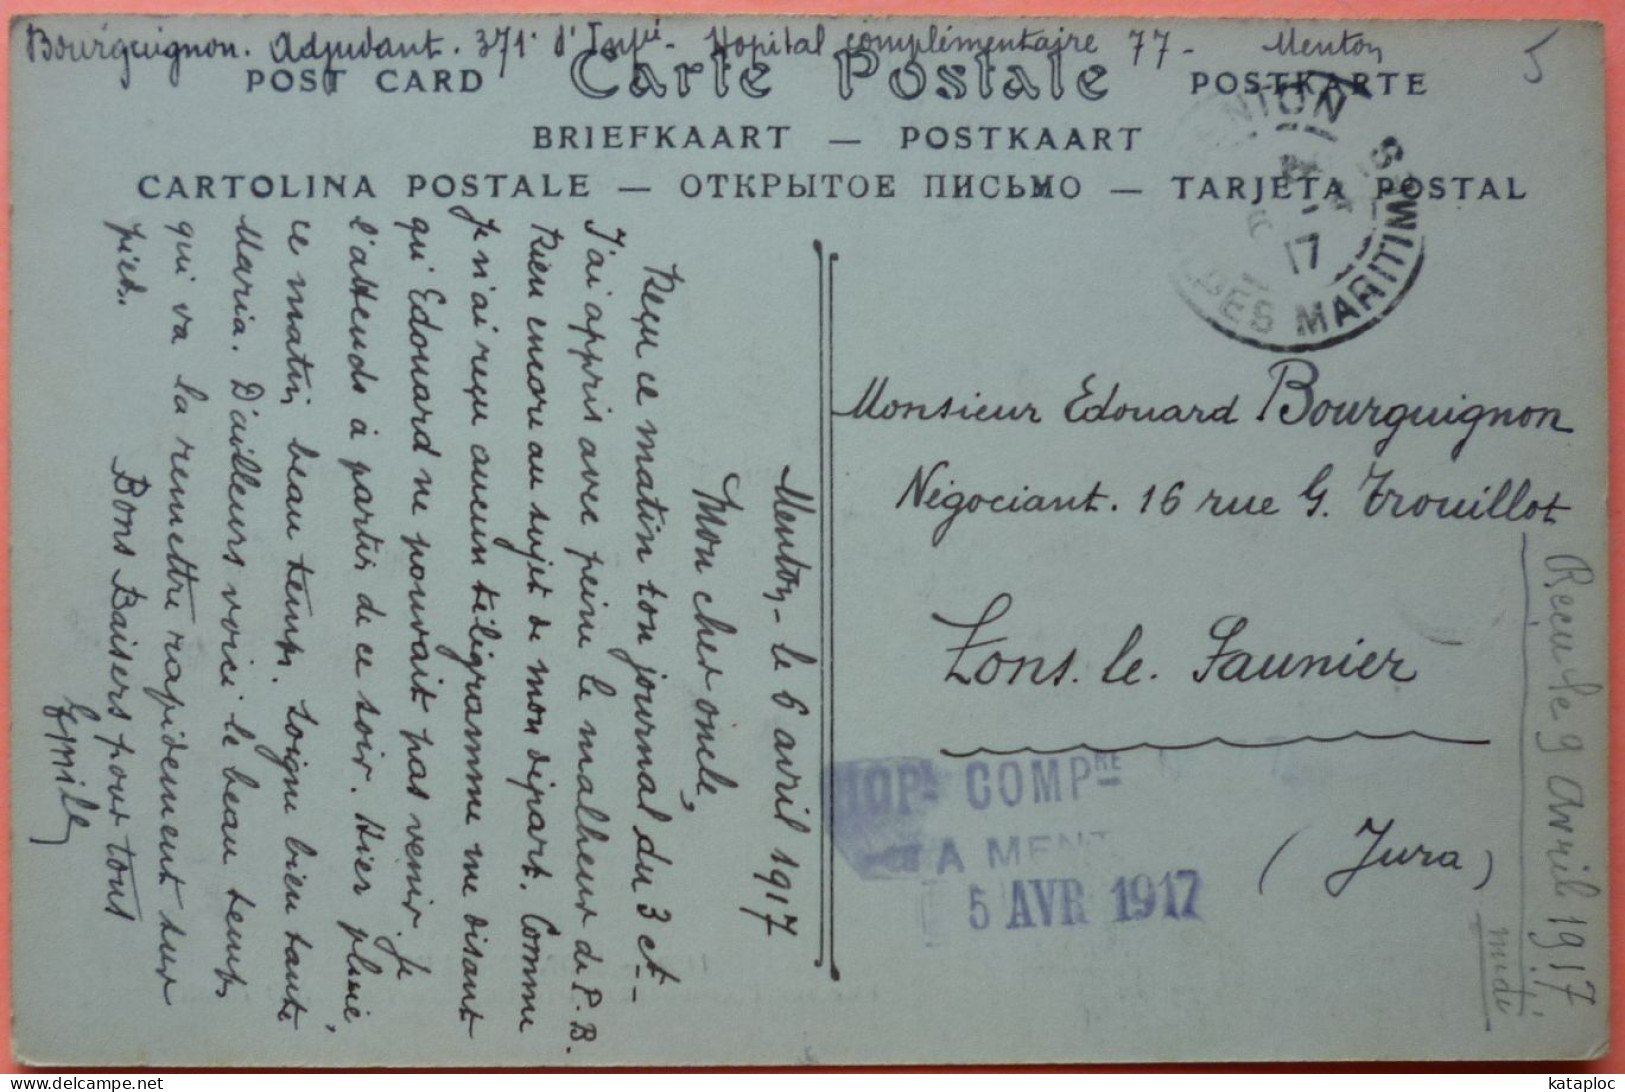 Bourguignon. Adjudant. 371e d'Infie - Hopital complémentaire 77 - Menton
5
POST CARD Carte Postale POSTKARTE
BRIEFKAART — POSTKAART
CARTOLINA POSTALE — ОТКРЫТОЕ ПИСЬМО — TARJETA POSTAL
Menton - le 6 avril 1917
Mon cher oncle,
Reçu ce matin ton journal du 3 et -
J'ai appris avec peine le malheur de P. B.
Rien encore au sujet de mon départ. Comme
je n'ai reçu aucun télégramme me disant
qu'Edouard ne pouvait pas venir. Je
l'attends à partir de ce soir. Hier pluie,
ce matin beau temps. Soigne bien tante
Maria. D'ailleurs voici le beau temps
qui va la remettre rapidement sur
pied.
Bons Baisers pour tous
Emile
Monsieur Edouard Bourguignon
Négociant. 16 rue G. Trouillot
Lons. le. Saunier
(Jura)
Reçu le 9 avril 1917
midi
MARITIMES
17
HOPL COMPRE
A MENT
5 AVR 1917
kataploc